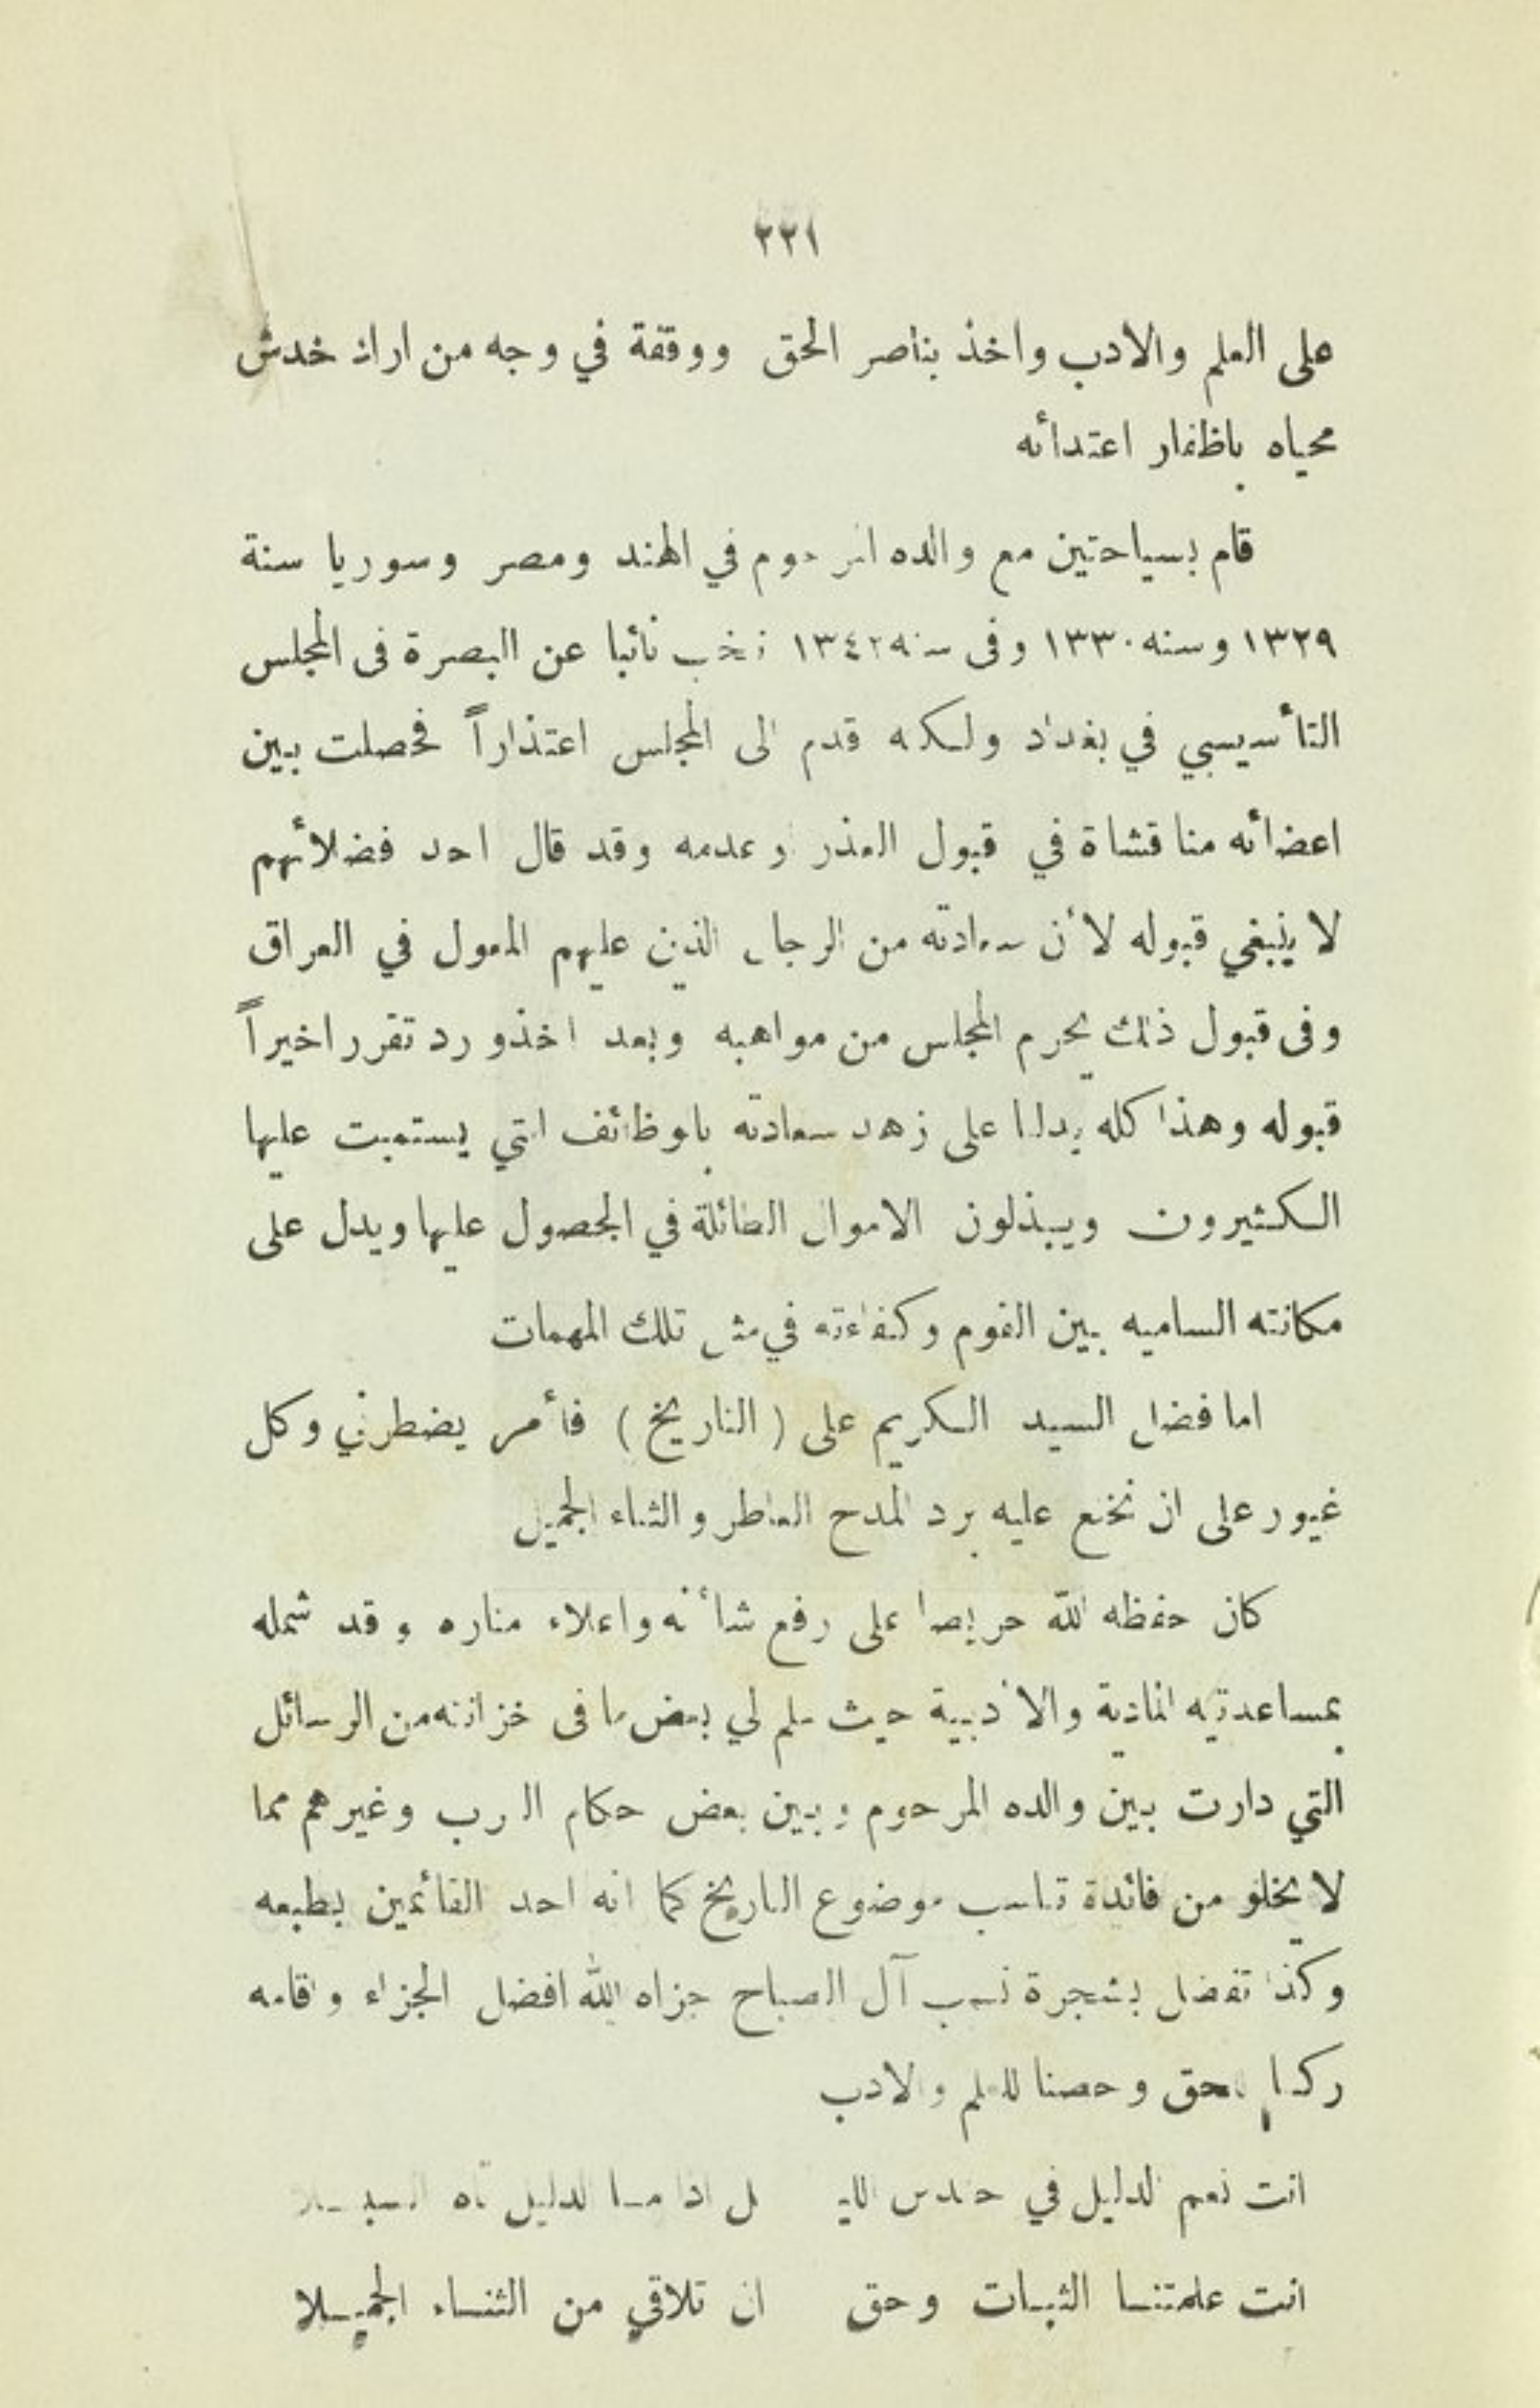 ٢٢١
على العلم والادب واخذ بناصر الحق ووقفة في وجه من اراد خدش
محياه باظفار اعتدائه
قام بسياحتين مع والده المرحوم في الهند ومصر وسوريا سنة
١٣٢٩ وسنه ١٣٣٠ وفى سنه ١٣٤٢ نخب نائبا عن البصرة فى المجلس
التأسيسي في بغداد ولكنه قدم الى المجلس اعتذاراً فحصلت بين
اعضائه مناقشاة في قبول العذر وعدمه وقد قال احد فضلائهم
لا ينبغي قبوله لأن سعادته من الرجال الذين عليهم المعول في العراق
وفى قبول ذلك يحرم المجلس من مواهبه وبعد اخذورد تقرر اخيراً
قبوله وهذا كله يدلنا على زهد سعادته بالوظائف التي يستميت عليها
الكثيرون ويبذلون الاموال الطائلة في الحصول عليها ويدل على
مكانته الساميه بين القوم وكفاءته في مثل تلك المهمات
اما فضل السيد الكريم على ( التاريخ ) فأمر يضطرني وكل
غيور على ان نخلع عليه برد المدح العاطر والثناء الجميل
كان حفظه الله حريصا على رفع شأنه واعلاء مناره وقد شمله
بمساعدتيه المادية والادبية حيث سلم لي بعض ما فى خزانته من الرسائل
التي دارت بين والده المرحوم وبين بعض حكام العرب وغيرهم مما
لا يخلو من فائدة تناسب موضوع التاريخ كما انه احد القائمين بطبعه
وكذا تفضل بشجرة نسب آل الصباح جزاه الله افضل الجزاء واقامه
ركنا للحق وحصنا للعلم والادب
انت نعم الدليل في حندس الليـ ـل اذا ما الدليل تاه السبيلا
انت علمتنا الثبات وحق ان تلاقي من الثناء الجميلا